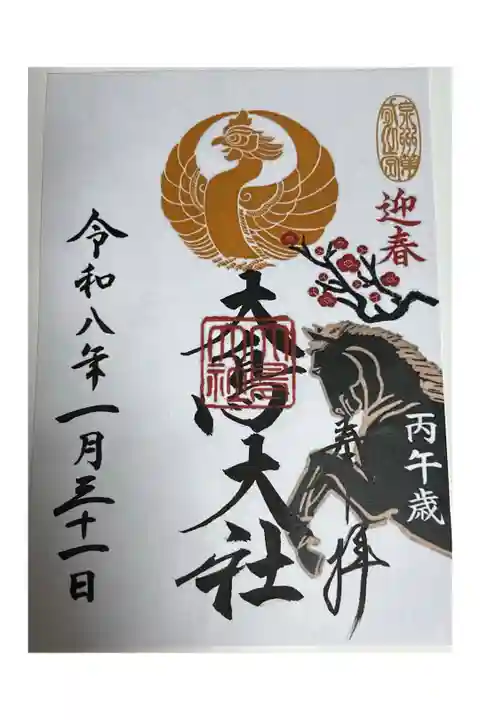 迎春
丙午歳
奉拝
大鳥大社
大鳥
大社
令和八年一月三十一日